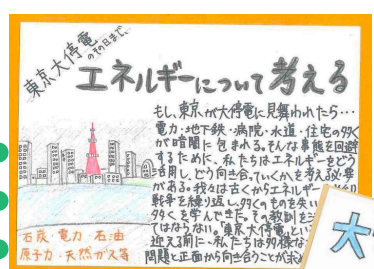 東京大停電
のその日まで、
エネルギーについて考える
もし、東京が大停電に見舞われたら…
電力・地下鉄・病院・水道・住宅の多く
が暗闇に包まれる。そんな事態を回避
するために、私たちはエネルギーをどう
活用し、どう向き合っていくか、を考える必要
がある。我々は古くからエネルギー
戦争を繰り返し、多くのものを失い
多くを学んできた。その教訓を
てはならない。「東京大停電」という
迎える前に、私たちは多様な
問題と正面から向き合うことが求め
石炭・電力・石油
原子力・天然ガス等
大